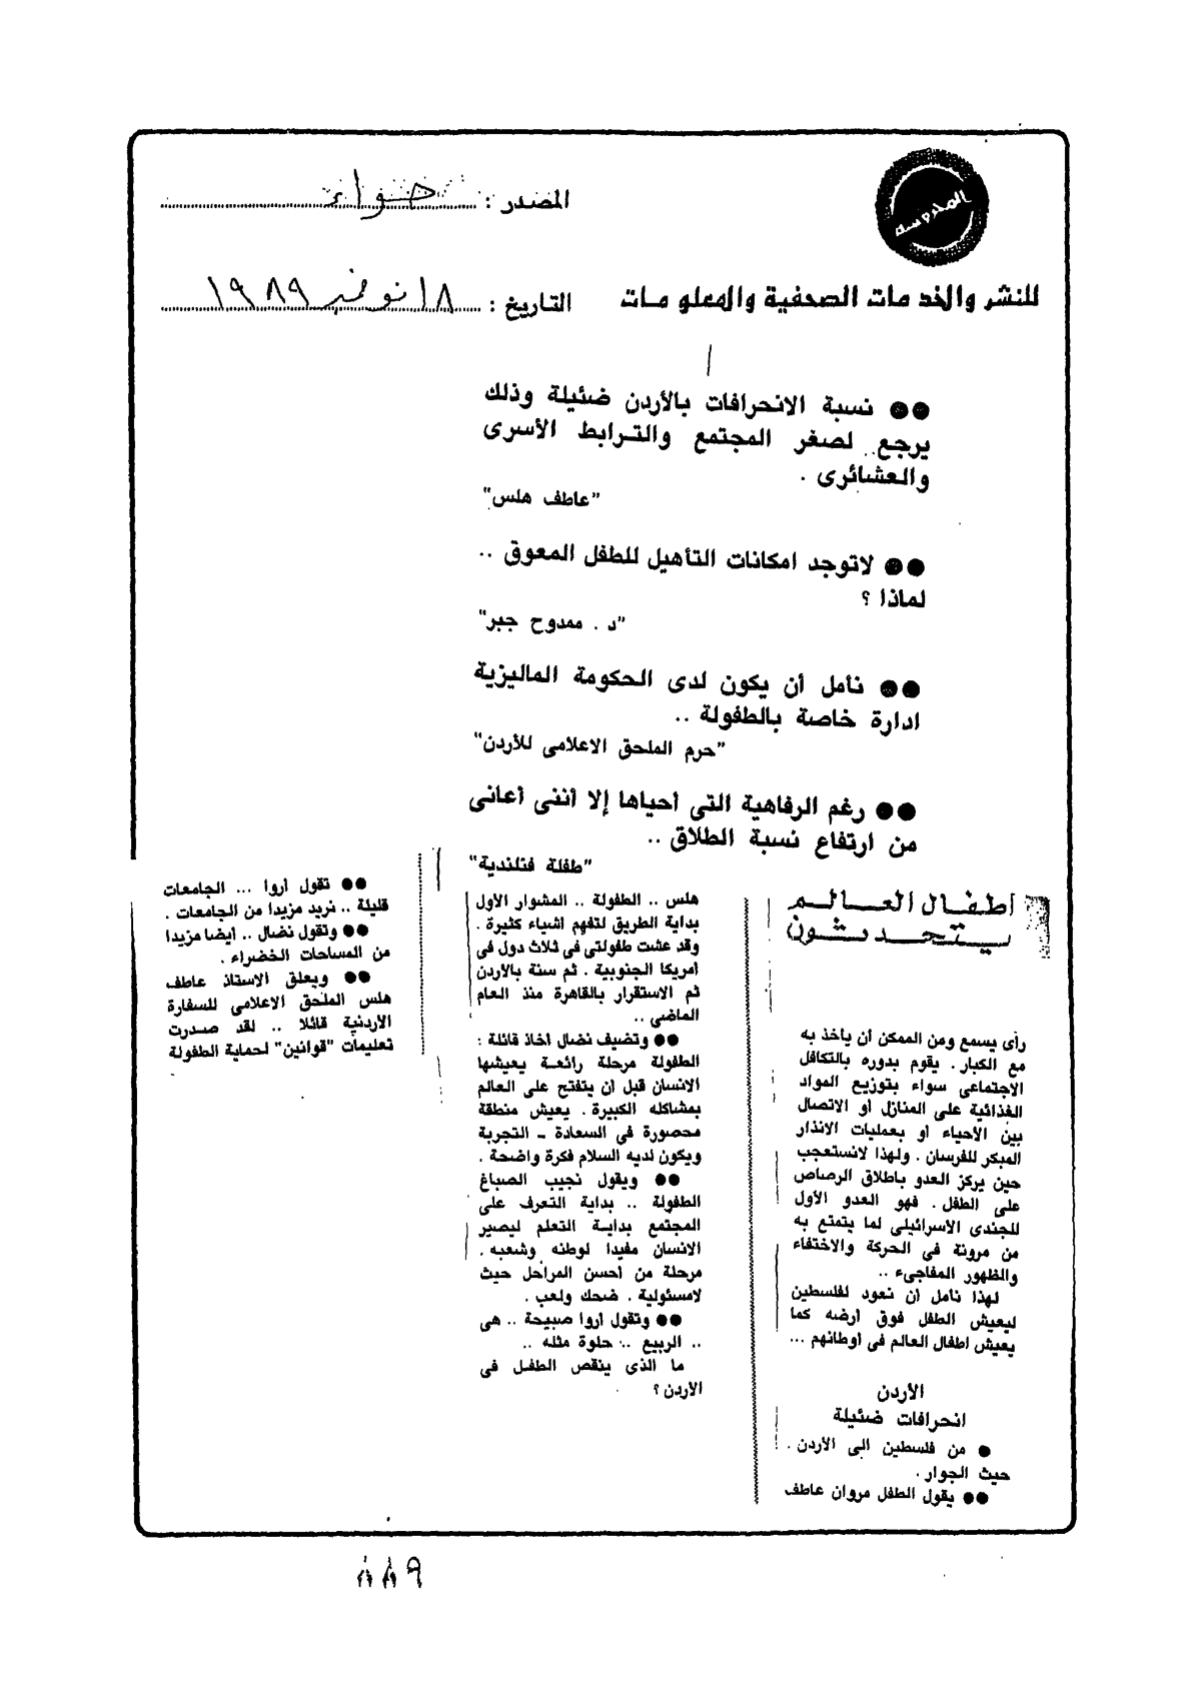 المحروسة
المصدر : حواء
للنشر والخدمات الصحفية والمعلومات
التاريخ : ١٨ نوفمبر ١٩٨٩
●● نسبة الانحرافات بالأردن ضئيلة وذلك
يرجع لصغر المجتمع والترابط الأسرى
والعشائرى .
"عاطف هلس"
●● لاتوجد امكانات التأهيل للطفل المعوق ..
لماذا ؟
"د . ممدوح جبر"
●● نأمل أن يكون لدى الحكومة الماليزية
ادارة خاصة بالطفولة ..
"حرم الملحق الاعلامى للأردن"
●● رغم الرفاهية التى أحياها إلا أننى أعانى
من ارتفاع نسبة الطلاق ..
"طفلة فنلندية"
أطفال العالم
يتحدثون
رأى يسمع ومن الممكن أن يأخذ به
مع الكبار . يقوم بدوره بالتكافل
الاجتماعى سواء بتوزيع المواد
الغذائية على المنازل أو الاتصال
بين الأحياء أو بعمليات الانذار
المبكر للفرسان . ولهذا لانستعجب
حين يركز العدو باطلاق الرصاص
على الطفل . فهو العدو الأول
للجندى الاسرائيلى لما يتمتع به
من مرونة فى الحركة والاختفاء
والظهور المفاجىء ..
لهذا نأمل أن نعود لفلسطين
ليعيش الطفل فوق أرضه كما
يعيش اطفال العالم فى أوطانهم ...
الأردن
انحرافات ضئيلة
● من فلسطين الى الأردن .
حيث الجوار .
●● يقول الطفل مروان عاطف
هلس .. الطفولة .. المشوار الأول
بداية الطريق لتفهم اشياء كثيرة .
وقد عشت طفولتى فى ثلاث دول فى
أمريكا الجنوبية . ثم سنة بالأردن
ثم الاستقرار بالقاهرة منذ العام
الماضى ..
●● وتضيف نضال أخاذ قائلة :
الطفولة مرحلة رائعة يعيشها
الانسان قبل أن يتفتح على العالم
بمشاكله الكبيرة . يعيش منطقة
محصورة فى السعادة ـ التجربة
ويكون لديه السلام فكرة واضحة .
●● ويقول نجيب الصباغ
الطفولة .. بداية التعرف على
المجتمع بداية التعلم ليصير
الانسان مفيدا لوطنه وشعبه .
مرحلة من أحسن المراحل حيث
لامسئولية . ضحك ولعب .
●● وتقول أروا صبيحة .. هى
.. الربيع .. حلوة مثله ..
ما الذى ينقص الطفل فى
الأردن ؟
●● تقول أروا ... الجامعات
قليلة .. نريد مزيدا من الجامعات .
●● وتقول نضال .. أيضا مزيدا
من المساحات الخضراء .
●● ويعلق الاستاذ عاطف
هلس الملحق الاعلامى للسفارة
الأردنية قائلا .. لقد صدرت
تعليمات "قوانين" لحماية الطفولة